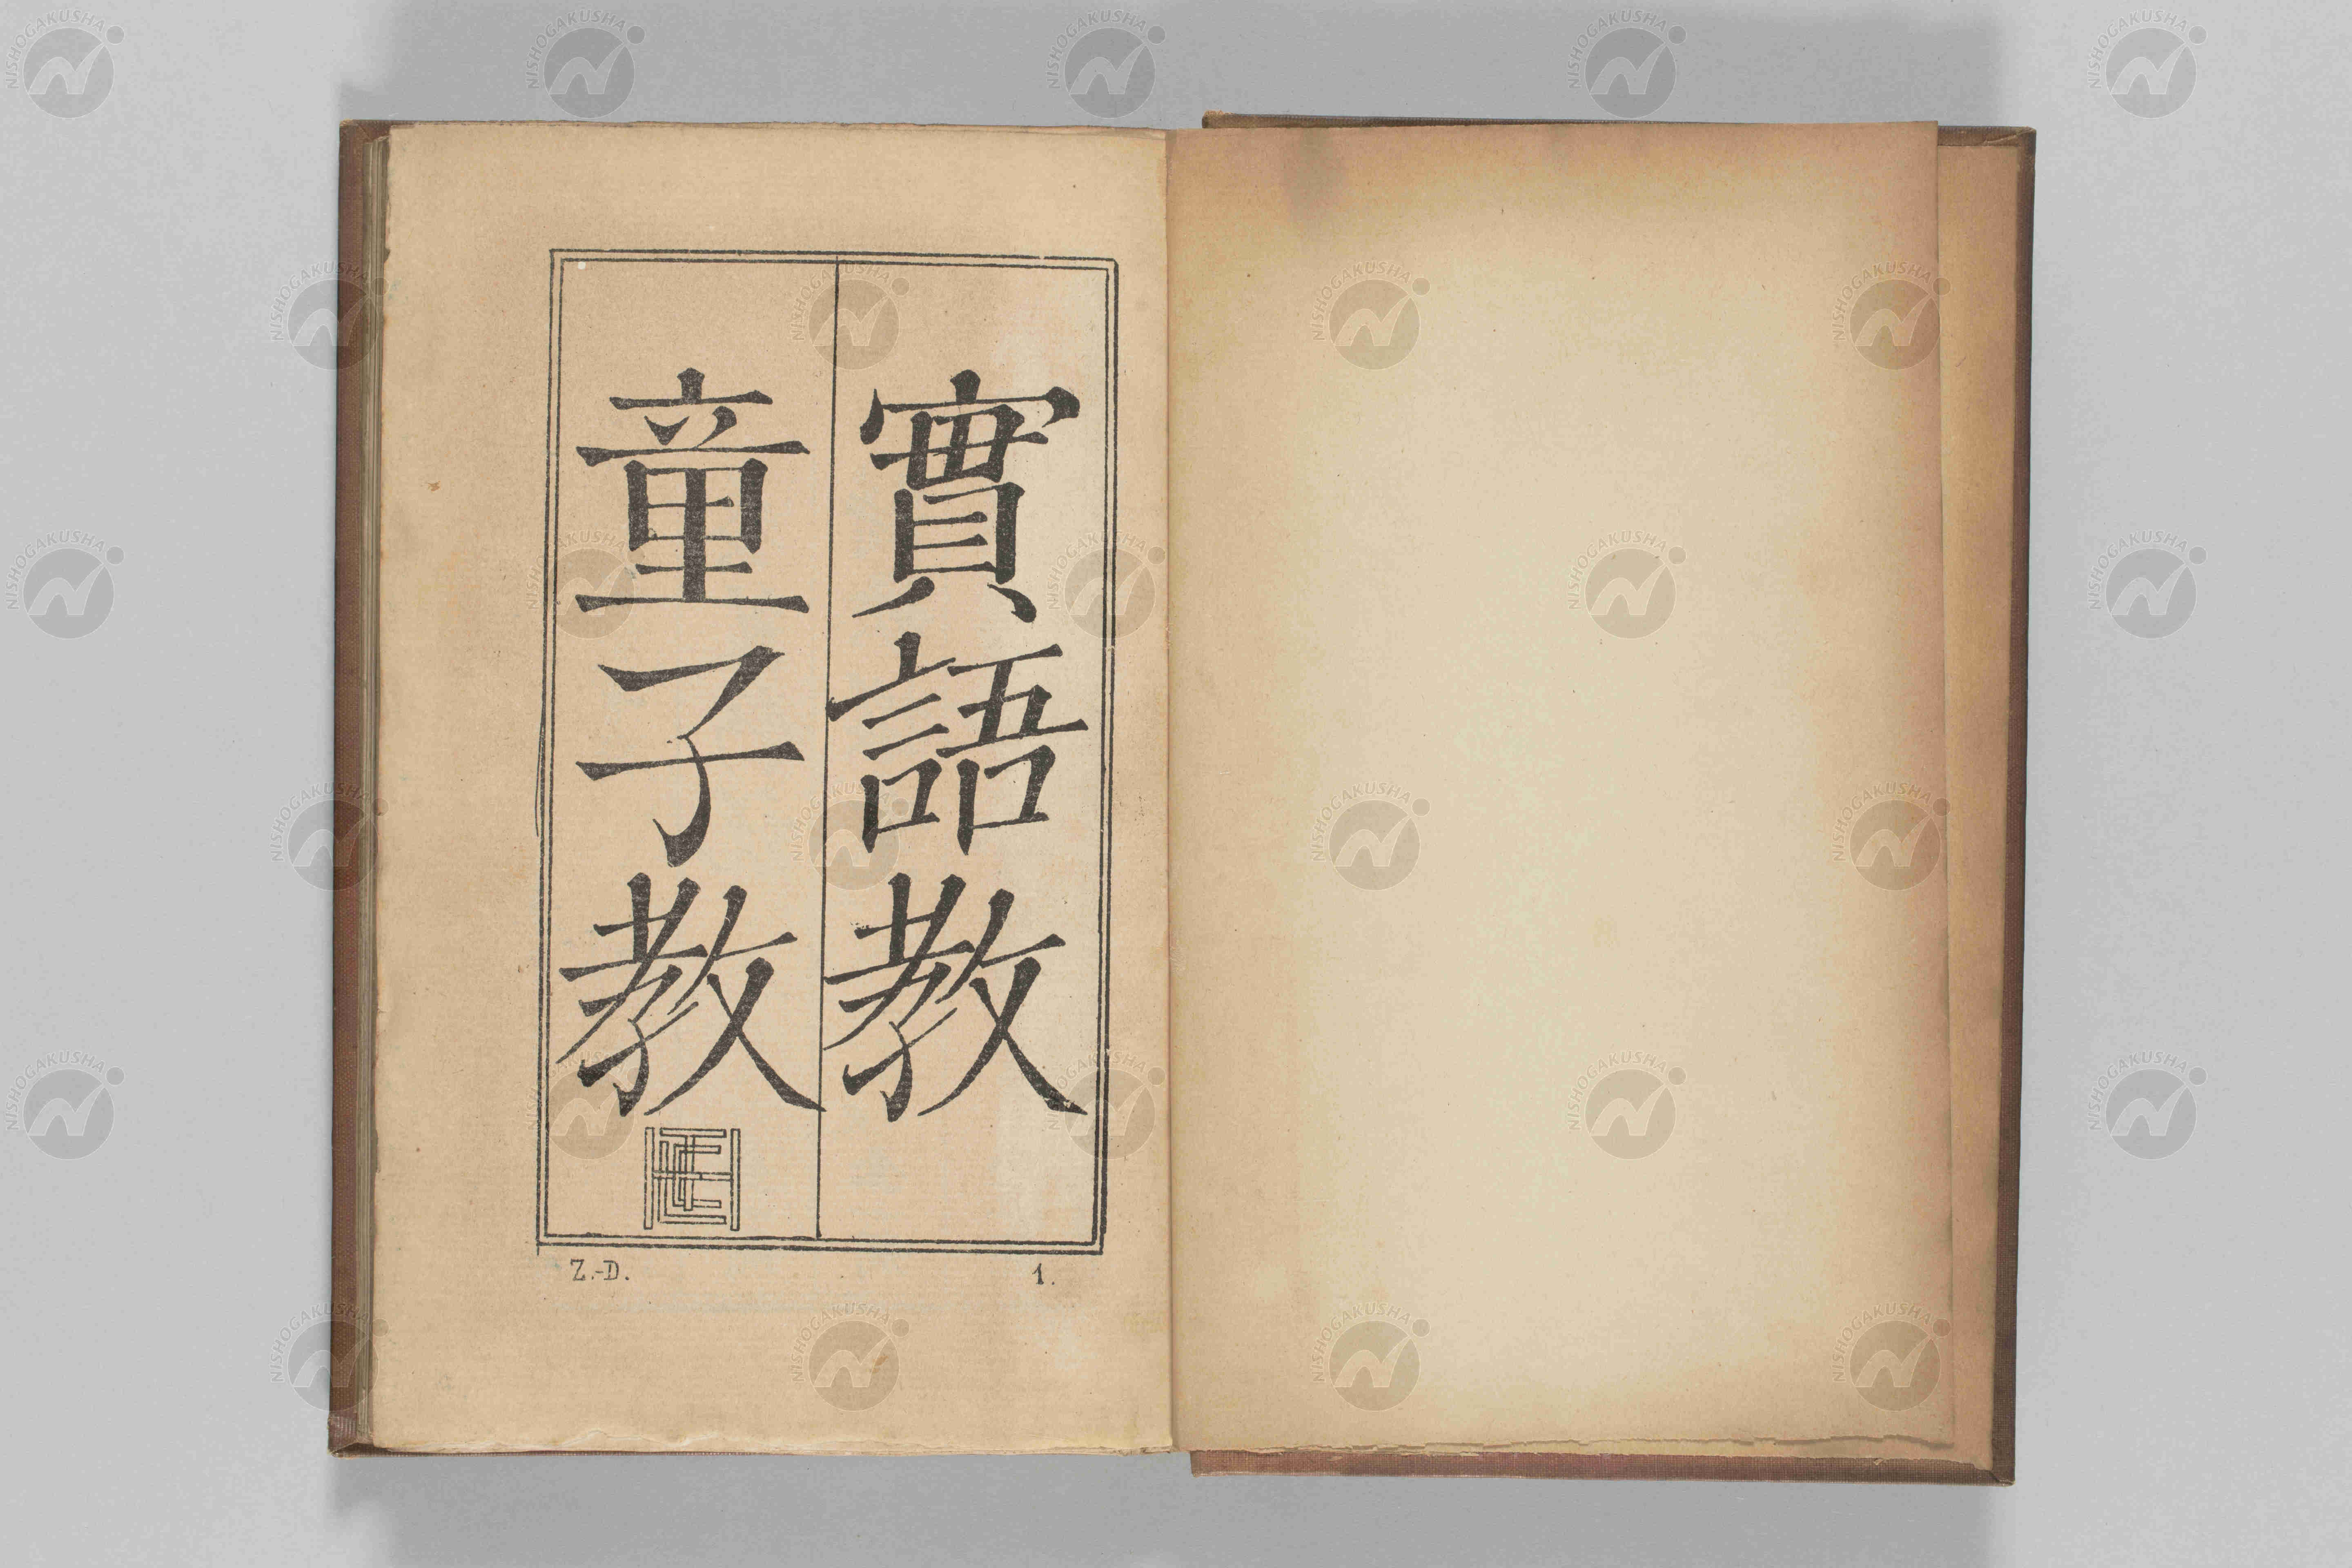 實語教
童子教
Z.-D.
1.
NISHOGAKUSHA